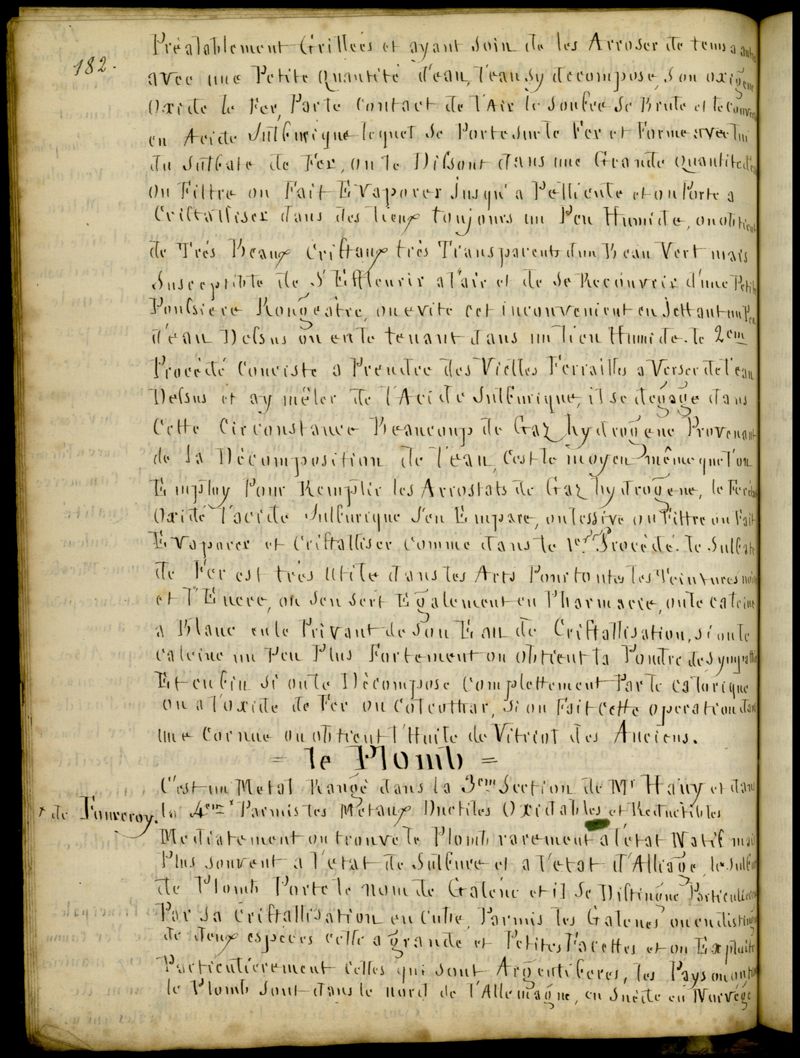 182.
Préalablement Grillées et ayant Soin de les Arroser de tems a
avec une Petite Quantité d'eau, l'eau Sy décompose, Son oxigene
Oxide le Fer, Par le Contact de l'Air le Soufre Se Brule et
en Acide Sulfurique lequel Se Porte Sur le Fer et Forme avec lui
du Sulfate de Fer, on le Dissout dans une Grande Quantité
on Filtre on Fait Evaporer Jusqu'a Pellicule et on Porte a
Cristalliser dans des lieux toujours un Peu Humide, on obtient
de Très Beaux Cristaux très Transparents d'un Beau Vert mais
Susceptible de S'Effleurir a l'air et de Se Recouvrir d'une Petite
Poussiere Rougeatre, on evite cet inconvenient en Jettant un Peu
d'eau Dessus ou en le tenant dans un lieu Humide. le 2em
Procédé Consiste a Prendre des Vielles Ferrailles a Verser de l'eau
Dessus et ay mêler de l'Acide Sulfurique, il se degage dans
Cette Circonstance Beaucoup de Gaz hydrogene Provenant
de la Décomposition de l'eau, C'est le moyen même que l'on
Employ Pour Remplir les Arrostats de Gaz hydrogene, le Fer
Oxidé l'acide Sulfurique S'en Empare, on lessive on Filtre on Fait
Evaporer et Cristalliser comme dans le 1er Procédé. le Sulfate
de Fer est très Utile dans les Arts Pour toutes les Teintures
et l'Encre, on Sen Sert Egalement en Pharmacie, on le Calcine
a Blanc en le Privant de Son Eau de Cristallisation, Si on le
calcine un Peu Plus Fortement on obtient la Poudre de Sympathie
Et enfin Si on le Décompose Complettement Par le Calorique
on a l'oxide de Fer ou Colcothar, Si on Fait Cette operation dans
une Cornue on obtient l'Huile de Vitriol des Anciens.
= le Plomb =
C'est un Metal Rangé dans la 3eme Section de Mr Haüy et dans
† de Fourcroy. la 4eme † Parmis les Metaux Ductiles Oxidables et Reductibles
Mediatement on trouve le Plomb rarement a l'etat Natif mais
Plus Souvent a l'etat de Sulfure et a l'etat d'Alliage, le Sulfure
de Plomb Porte le nom de Galène et il Se Distingue Particulierement
Par Sa Cristallisation en Cube, Parmis les Galenes on en distingue
de deux especes celle a grande et Petites Facettes et on Exploite
Particulierement Celles qui Sont Argentiferes, les Pays
le Plomb Sont dans le nord de l'Allemagne, en Suède en Norvége